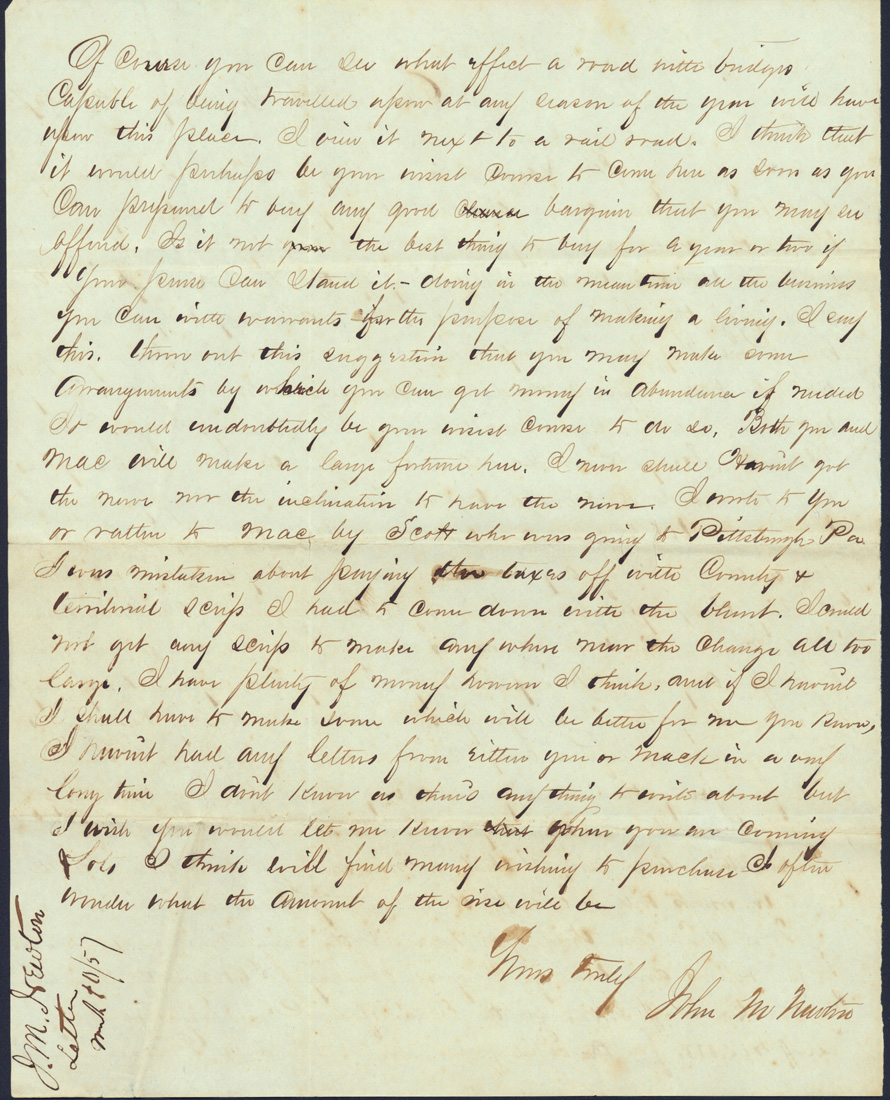 Of Course you can see what effect a road with bridges
Capable of being travelled upon at any season of the year will have
upon this place. I view it next to a rail road. I think that
it would perhaps be your wisest course to come here as soon as you
Can prepared to buy any good bargain that you may see
offered. Is it not the best thing to buy for a year or two if
your purse can stand it - doing in the mean time all the business
you can with warrants for the purpose of making a living. I say
this. throw out this suggestion that you may make some
arrangements by which you can get money in abundance if needed
It would undoubtedly be your wisest course to do so. Both you and
Mac will make a large fortune here. I never shall Havint got
the nerve nor the inclination to have the nerve. I wrote to you
or rather to Mac, by Scott who was going to Pittsburgh Pa
I was mistaken about paying the taxes off with County &
Territorial scrip I had to come down with the blunt. I could
not get any scrip to make any where near the change all too
large. I have plenty of money however I think, and if I havint
I shall have to make some which will be better for me you know,
I havint had any letters from either you or Mack in a very
long time I dont know as theres any thing to write about but
I wish you would let me know when you are coming
Lots I think will find many wishing to purchase I often
wonder what the amount of the rise will be
Yours truly
John M Newton
J. M. Newton
Letter
Mch 10/57